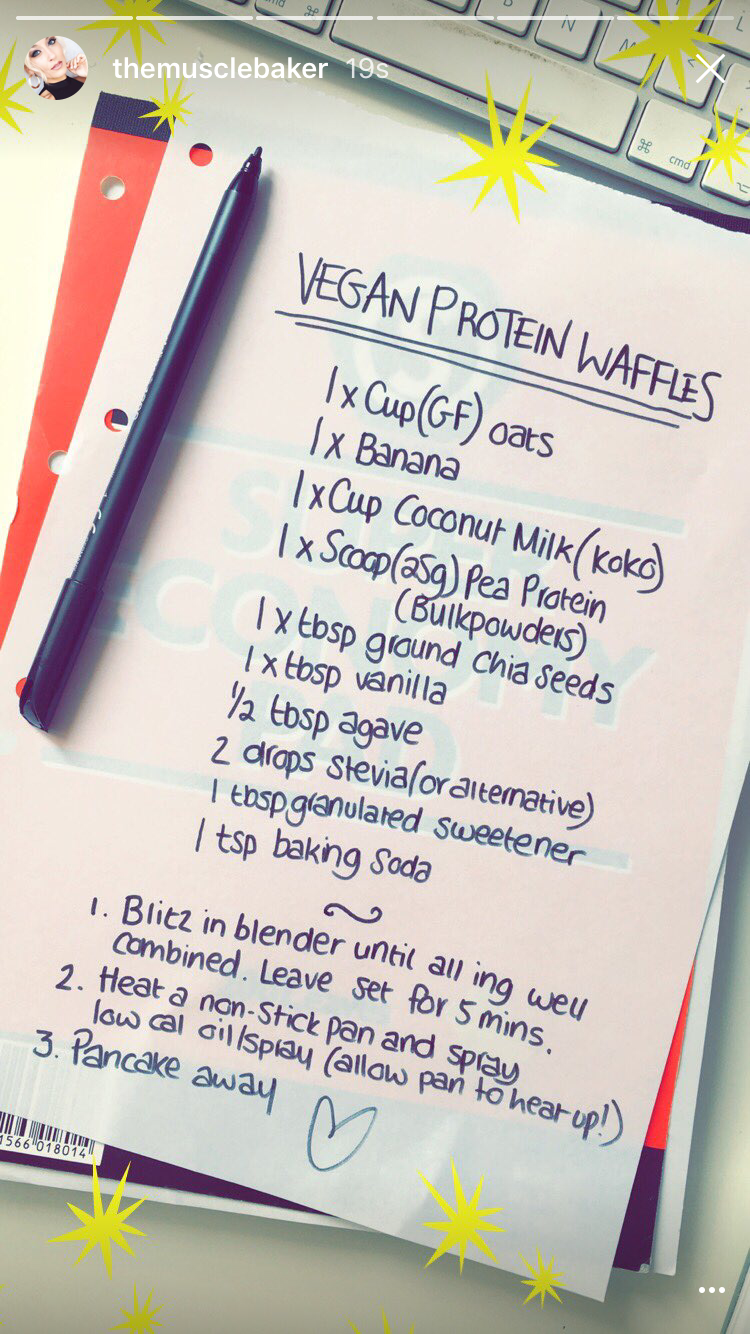 themusclebaker 19s
cmd
N
M
⌘
⌘ cmd
VEGAN PROTEIN WAFFLES
1 x Cup (GF) oats
1 x Banana
1 x Cup Coconut Milk (koko)
1 x Scoop (25g) Pea Protein
(Bulkpowders)
1 x tbsp ground chia seeds
1 x tbsp vanilla
1/2 tbsp agave
2 drops stevia (or alternative)
1 tbsp granulated sweetener
1 tsp baking soda
1. Blitz in blender until all ing well
combined. Leave set for 5 mins.
2. Heat a non-stick pan and spray
low cal oil/spray (allow pan to heat up!)
3. Pancake away
SUPER
ECONOMY
PAD
1566 018014